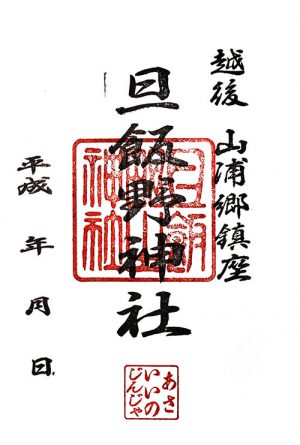 越後 山浦郷鎮座
旦飯野神社
平成 年 月 日
旦飯野神社
あさ
いいの
じんじゃ